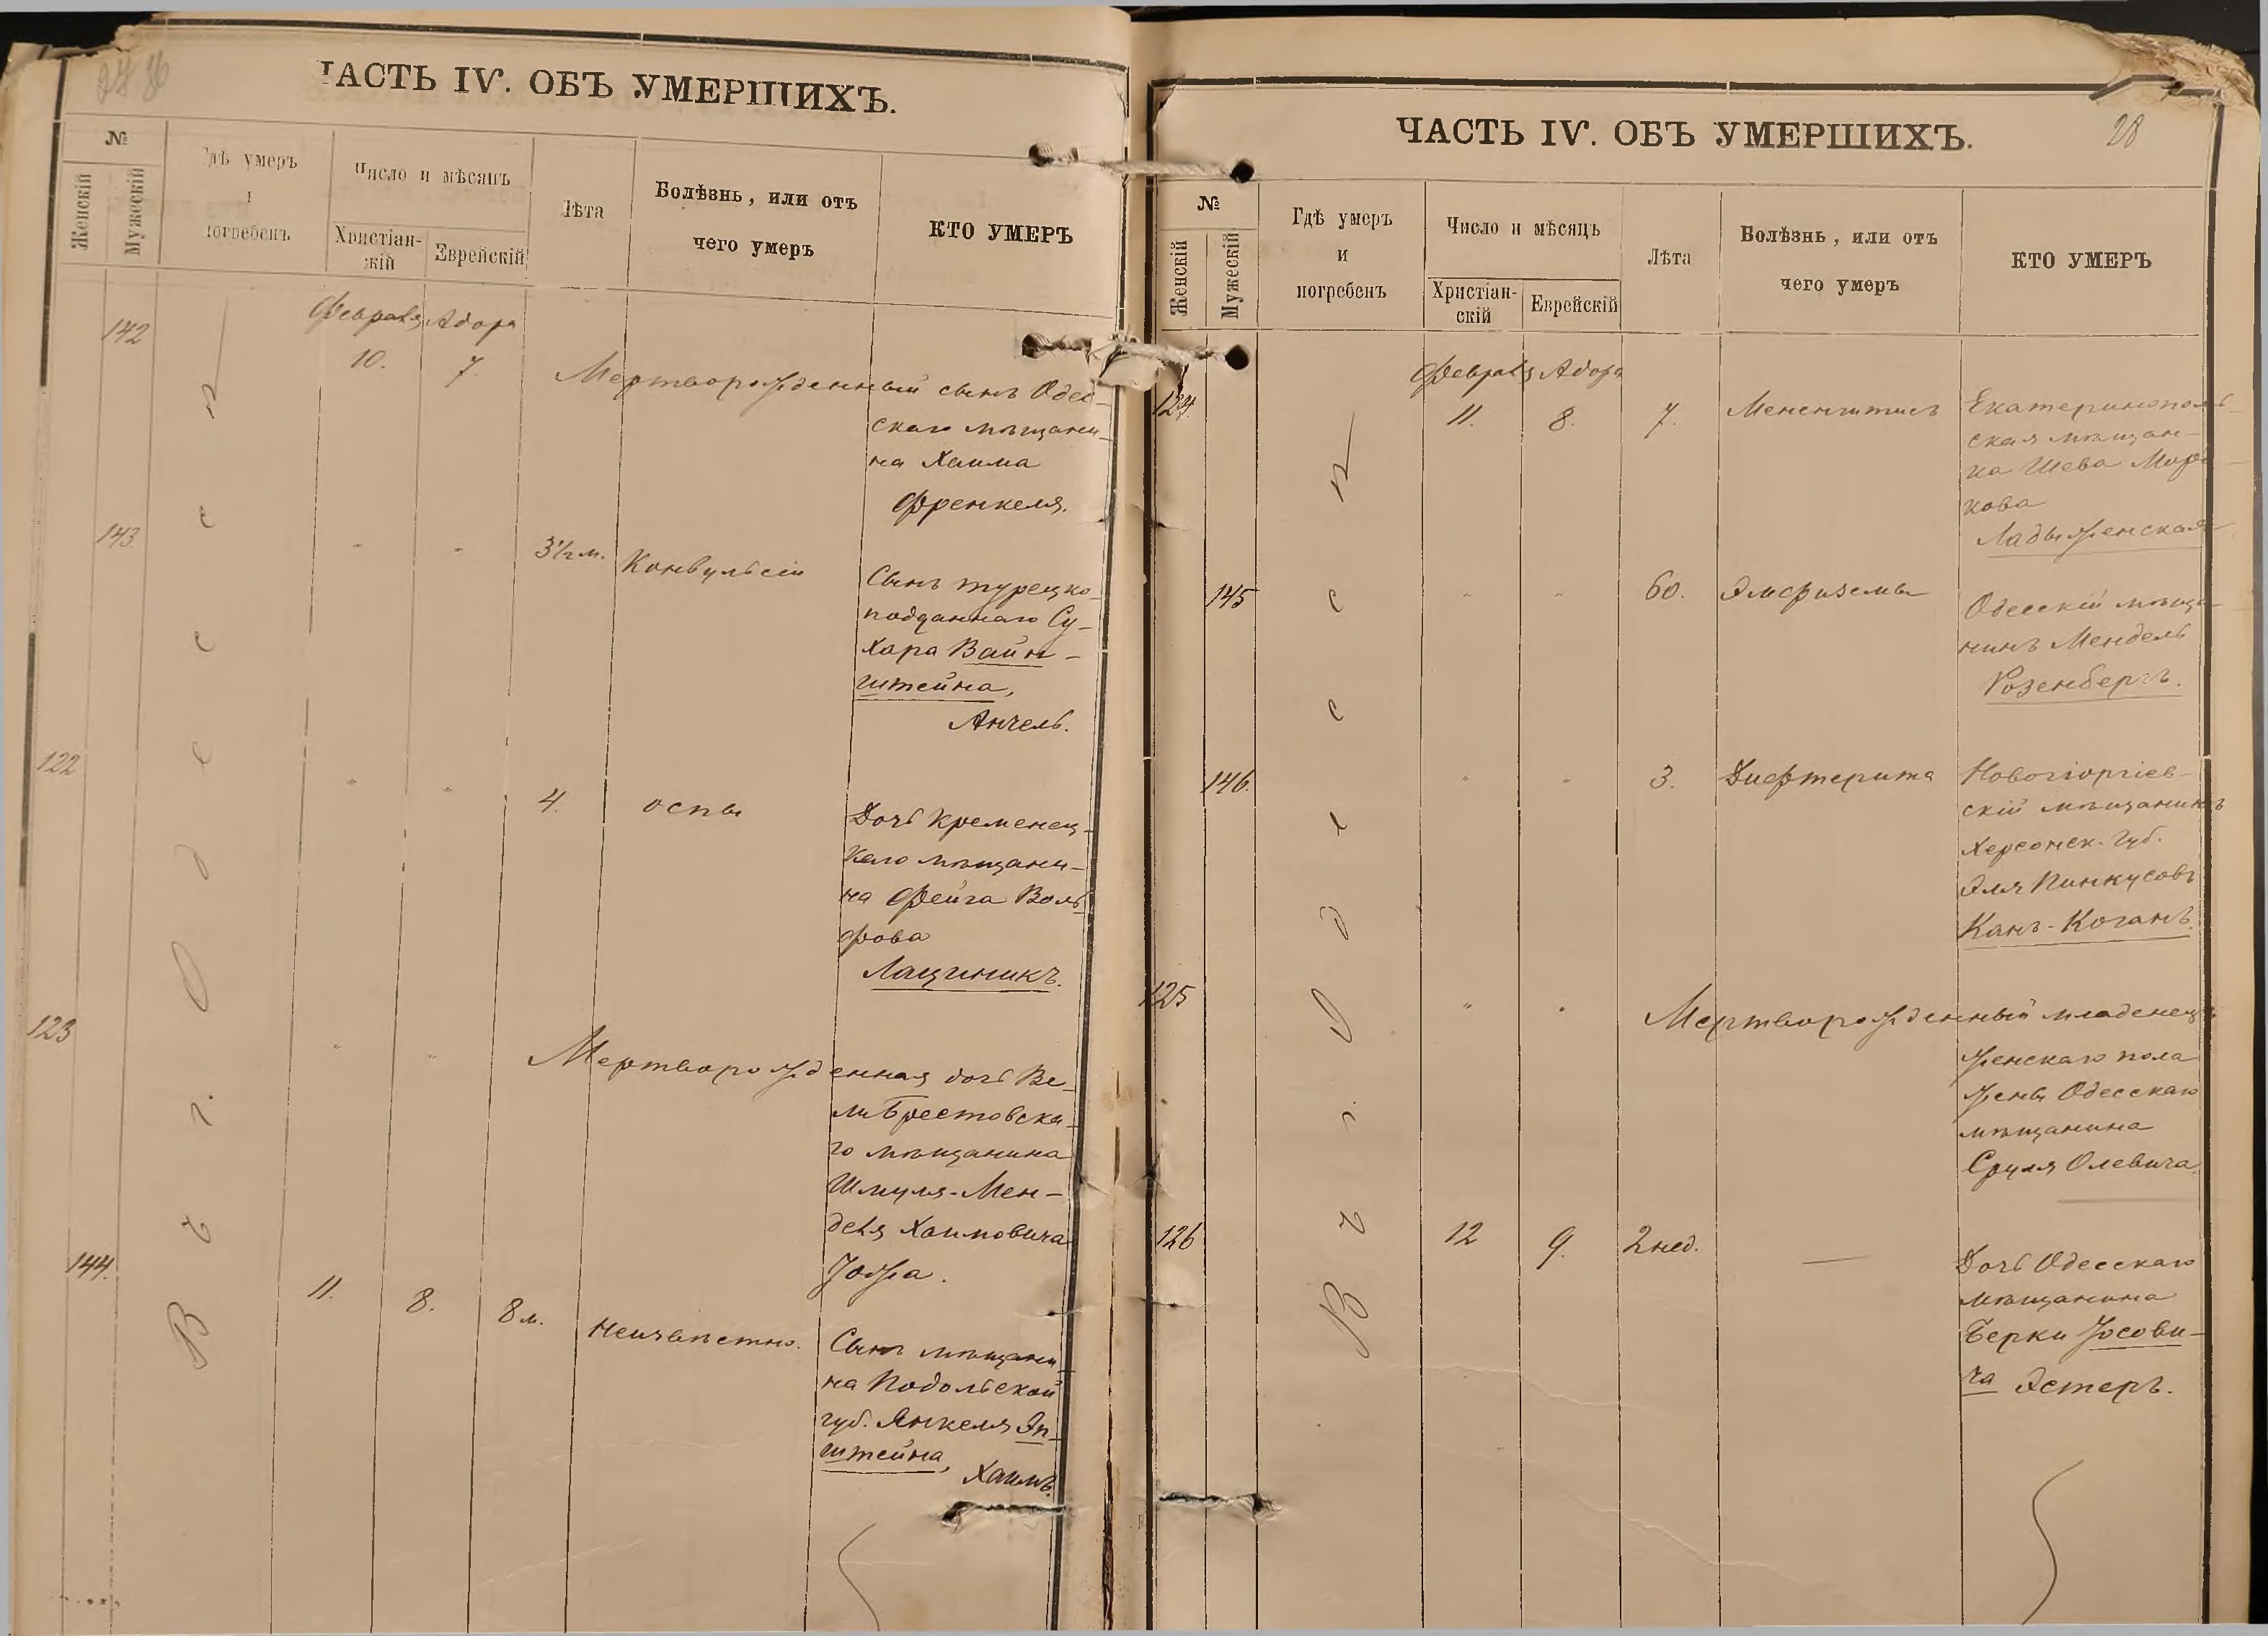 ЧАСТЬ IV. ОБЪ УМЕРШИХЪ.
№
Женскій
Мужескій
Гдѣ умеръ
и
погребенъ
Число и мѣсяцъ
Христіан-
скій
Еврейскій
Лѣта
Болѣзнь, или отъ
чего умеръ
КТО УМЕРЪ
Въ г. Одессѣ
Февраля Адора
142
10. 7.
Мертворожденный сынъ Одес-
скаго мѣщани-
на Хаима
Френкеля.
143
" " 3½ м. Конвульсіи
Сынъ турецко-
подданнаго Су-
хара Вайн-
штейна,
Анчель.
122
" " 4. оспы
Дочь Кременец-
каго мѣщани-
на Фейга Воль-
фова
Лащиникъ.
123
" "
Мертворожденная дочь Ве-
ли Брестовска-
го мѣщанина
Шмуля-Мен-
деля Хаимовича
144.
11. 8. 8 м. Неизвѣстно.
Сынъ мѣщани-
на Подольской
губ. Янкеля Эп-
штейна,
Хаимъ.
ЧАСТЬ IV. ОБЪ УМЕРШИХЪ.
28
№
Женскій
Мужескій
Гдѣ умеръ
и
погребенъ
Число и мѣсяцъ
Христіан-
скій
Еврейскій
Лѣта
Болѣзнь, или отъ
чего умеръ
КТО УМЕРЪ
Въ г. Одессѣ
Февраля Адора
124.
11. 8. 7. Менингитисъ
Екатеринополь-
ская мѣщан-
ка Шева Морд-
кова
Ладыженская
145
" " 60. Эмфиземы
Одесскій мѣща-
нинъ Мендель
Розенбергъ.
146.
" " 3. Дифтерита
Новогіоргіев-
скій мѣщанинъ
Херсонск. губ.
Эля Пинкусовъ
Канъ-Коганъ.
125
" "
Мертворожденный младенецъ
женскаго пола
жены Одесскаго
мѣщанина
Сруля Олевича.
126
12 9. 2 нед. —
Дочь Одесскаго
мѣщанина
Берки Іосови-
ча Эстеръ.